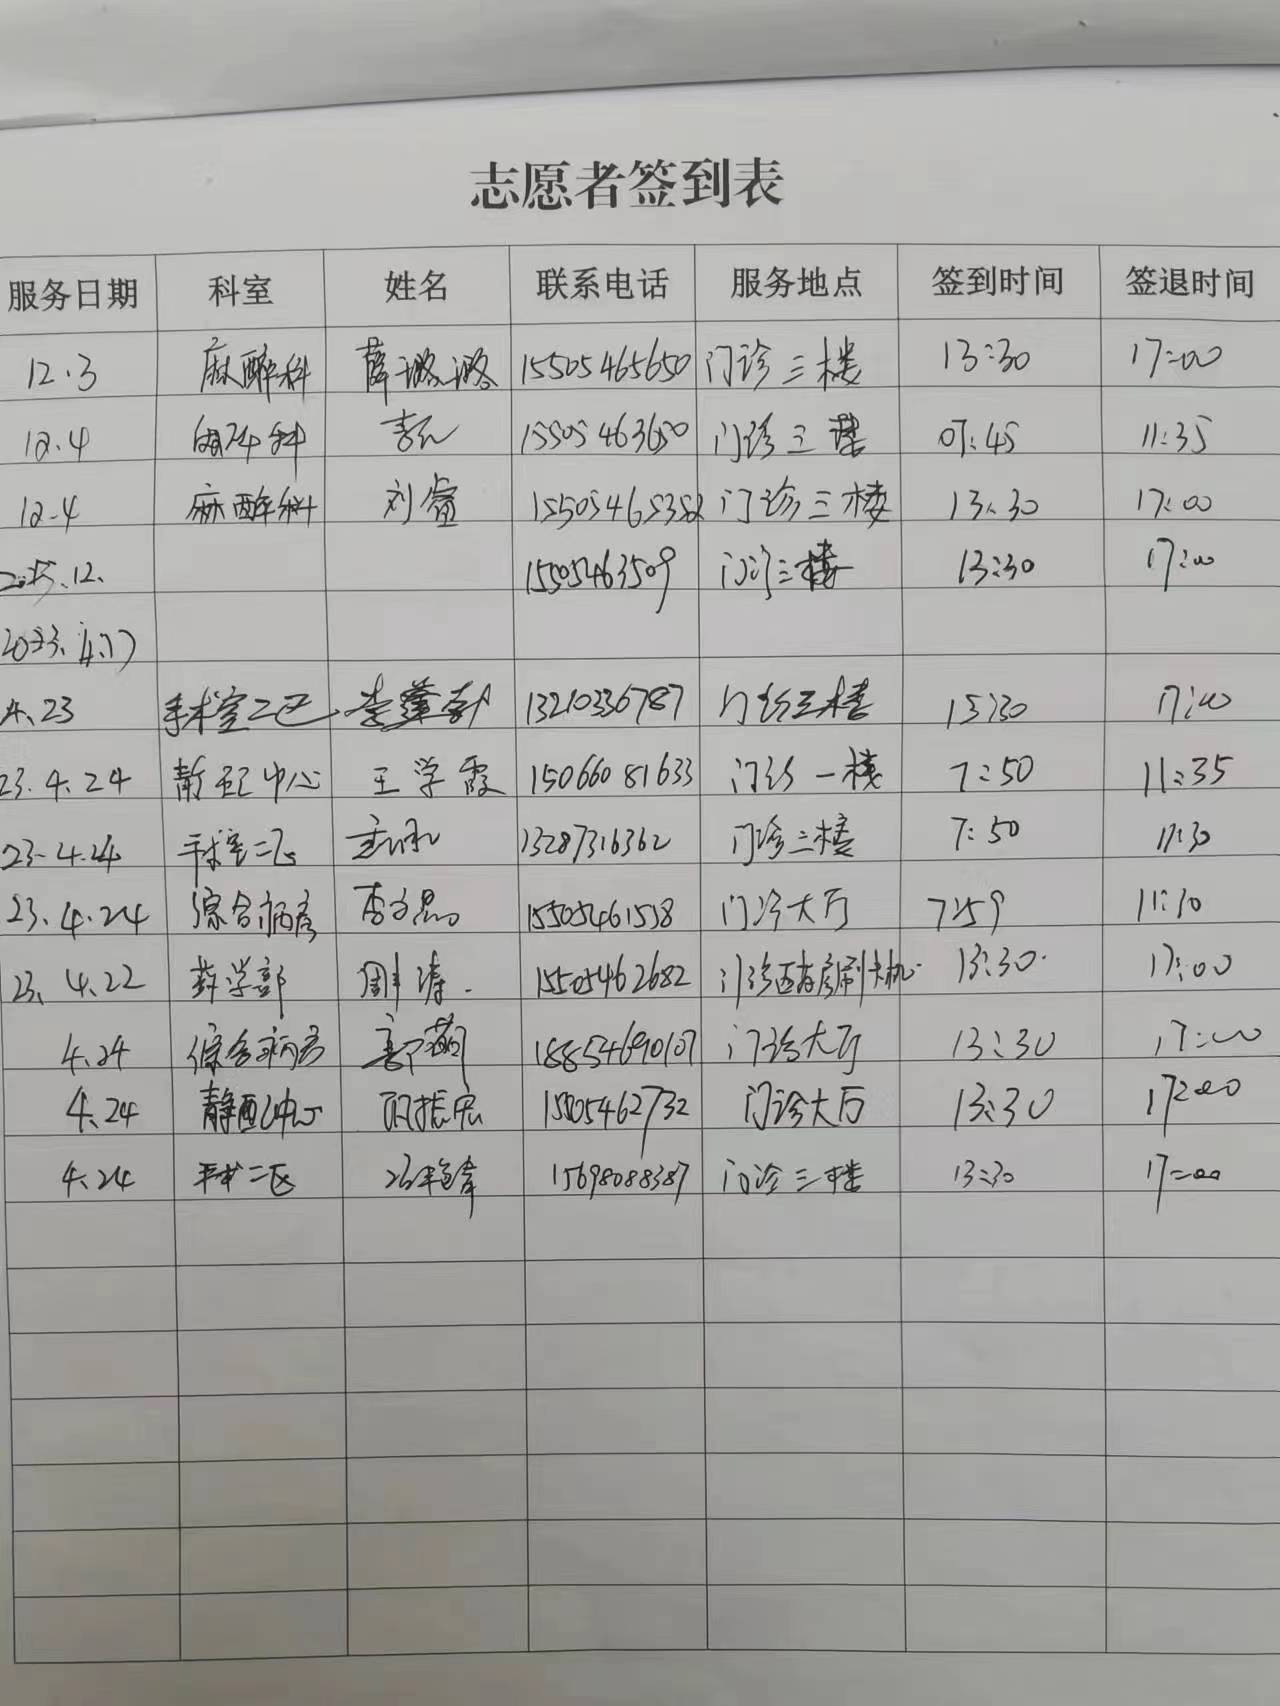 志愿者签到表
服务日期 科室 姓名 联系电话 服务地点 签到时间 签退时间
12.3 麻醉科 薛潞潞 15505465650 门诊三楼 13:30 17:00
12.4 15505463650 门诊三楼 07:45 11:35
12.4 麻醉科 刘睿 15505465352 门诊三楼 13:30 17:00
12. 15505463509 门诊三楼 13:30 17:00
2023.4.17
4.23 手术室二区 李 13210336787 门诊三楼 15:30 17:00
23.4.24 静配中心 王学霞 15066081633 门诊一楼 7:50 11:35
23.4.24 手术室二区 13287316362 门诊三楼 7:50 11:30
23.4.24 综合病房 李 15505461538 门诊大厅 7:59 11:30
23.4.22 药学部 周涛 15505462682 门诊西药房刷卡机 13:30 17:00
4.24 综合病房 郭萌 18854690107 门诊大厅 13:30 17:00
4.24 静配中心 振宏 15505462732 门诊大厅 13:30 17:00
4.24 手术二区 15698088387 门诊三楼 13:30 17:00